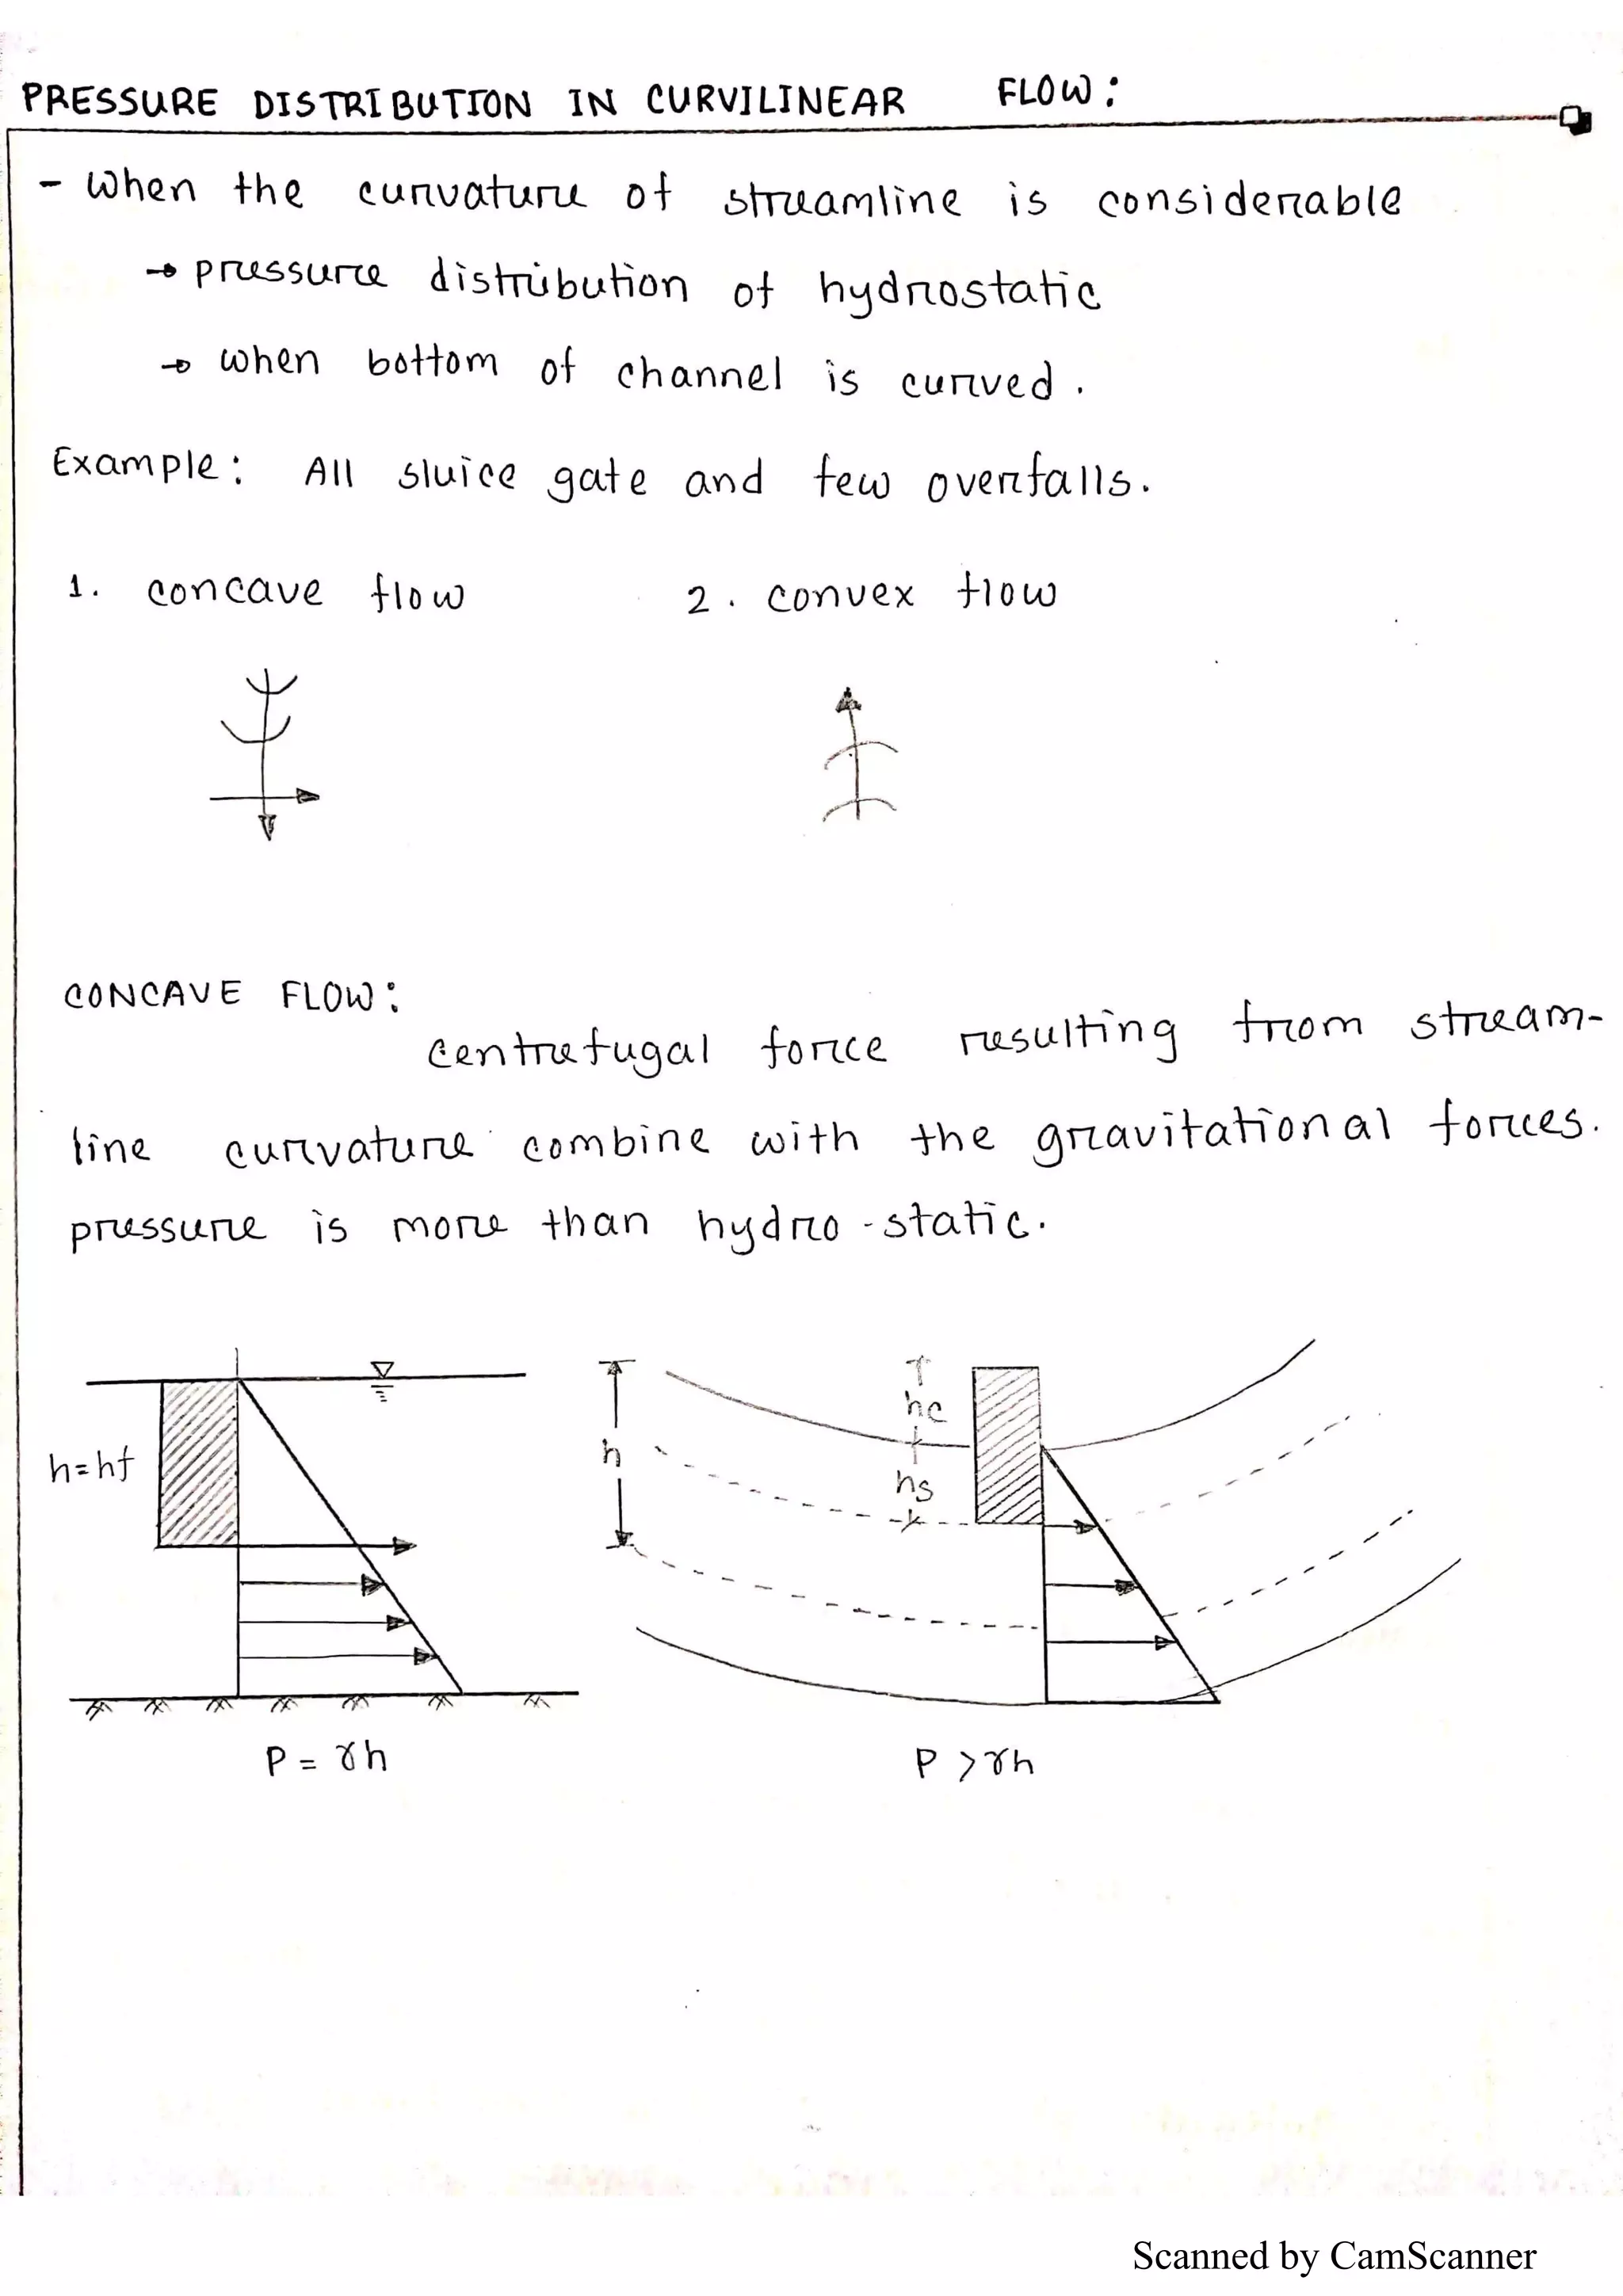 PRESSURE DISTRIBUTION IN CURVILINEAR FLOW:
- When the curvature of streamline is considerable
→ pressure distribution of hydrostatic
→ when bottom of channel is curved.
Example: All sluice gate and few overfalls.
1. concave flow 2. convex flow
CONCAVE FLOW:
Centrefugal force resulting from stream-
line curvature combine with the gravitational forces.
pressure is more than hydro-static.
h=hf
h
hc
hs
P = γh
P > γh
Scanned by CamScanner